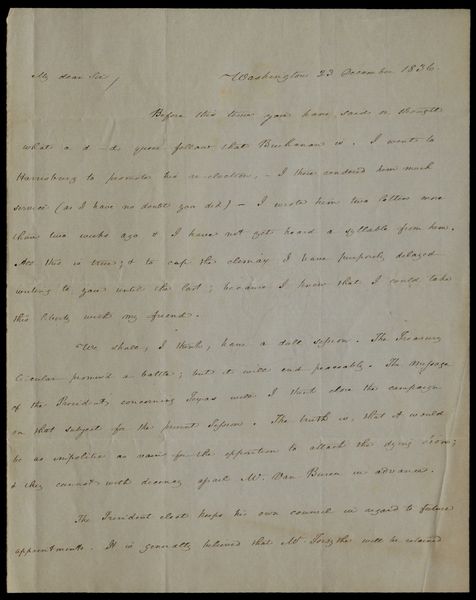 Washington 23 December 1836.
My dear Sir,
Before this time you have said or thought
what a d--d queer fellow that Buchanan is. I went to
Harrisburg to promote his re-election, - I there rendered him much
service (as I have no doubt you did) - I wrote him two letters more
than two weeks ago & I have not yet heard a syllable from him.
All this is true; & to cap the climax I have purposely delayed
writing to you until the last; because I knew that I could take
this liberty with my friend.
We shall, I think, have a dull session. The Treasury
Circular promised a battle; but it will end peaceably. The Message
of the President, concerning Texas will I think close the campaign
on that subject for the present Session. The truth is, that it would
be as impolitic as vain for the opposition to attack the dying Lion;
& they cannot with decency attack Mr. Van Buren in advance.
The President elect keeps his own council in regard to future
appointments. It is generally believed that Mr. Forsythe will be retained